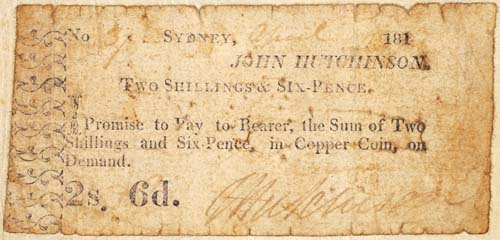 No SYDNEY, April 181
JOHN HUTCHINSON.
TWO SHILLINGS & SIX-PENCE.
I Promise to Pay to Bearer, the Sum of Two
Shillings and Six-Pence, in Copper Coin, on
Demand.
2s. 6d. J Hutchinson